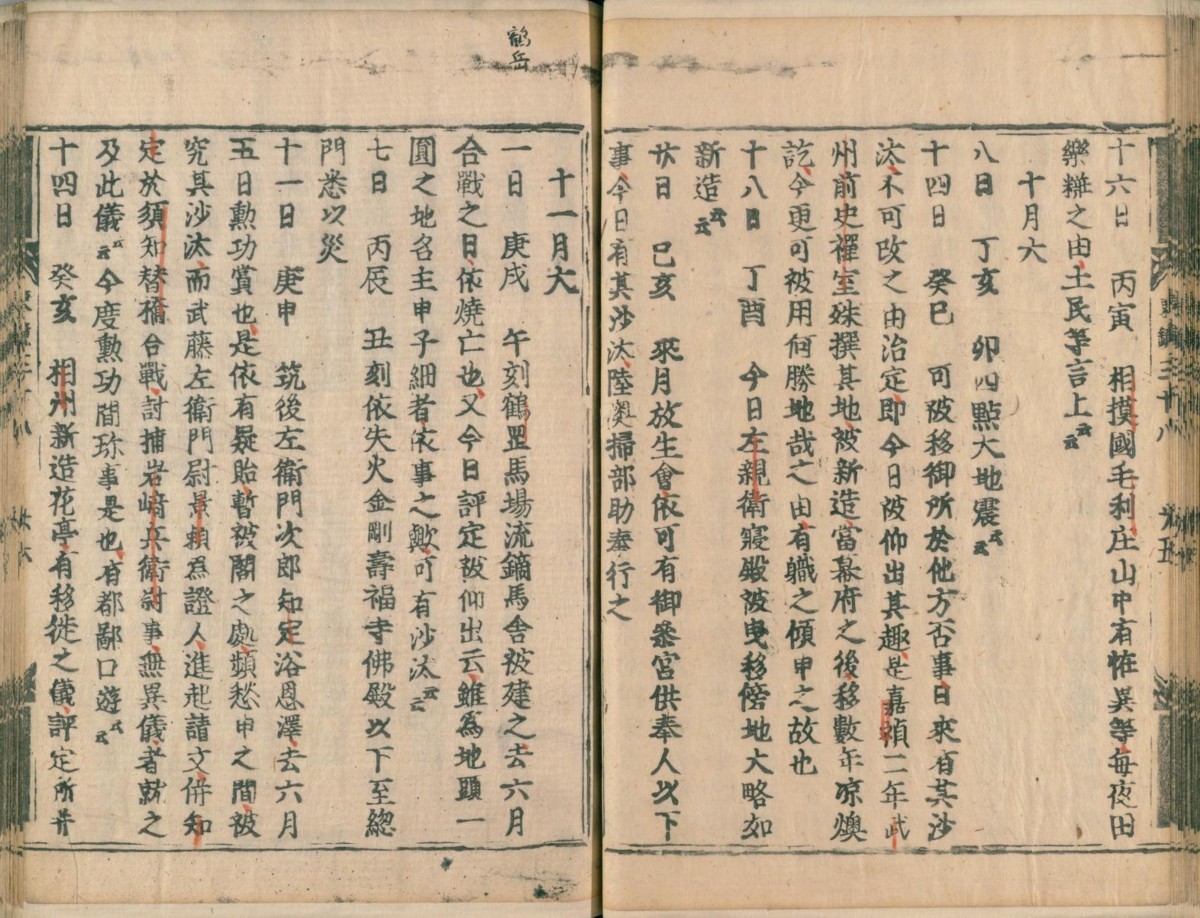 十六日　丙寅　相摸國毛利庄山中有恠異等每夜田
樂粧之由土民等言上云云
十月六
八日　丁亥　卯四點大地震云云
十四日　癸巳　可被移御所於他方否事日來有其沙
汰不可改之由治定即今日被仰出其趣是嘉禎二年武
州前史禪室殊撰其地被新造當幕府之後移數年凉燠
訖今更可被用何勝地哉之由有職之傾申之故也
十八日　丁酉　今日左親衛寢殿被曳移傍地大略如
新造云云
廿日　己亥　來月放生會依可有御參宮供奉人以下
事今日有其沙汰陸奧掃部助奉行之
鶴岳
十一月大
一日　庚戌　午刻鶴罡馬場流鏑馬舍被建之去六月
合戰之日依燒亡也又今日評定被仰出云雖為地頭一
圓之地名主申子細者依事之躰可有沙汰云云
七日　丙辰　丑刻依失火金剛壽福寺佛殿以下至總
門悉以災
十一日　庚申　筑後左衛門次郎知定浴恩澤去六月
五日勳功賞也是依有疑貽暫被閣之處頻愁申之間被
究其沙汰而武藤左衛門尉景頼為證人進起請文併知
定於須知替橋合戰討捕岩﨑兵衛尉事無異儀者就之
及此儀云云今度勳功間珎事是也有都鄙口遊云云
十四日　癸亥　相州新造花亭有移徙之儀評定所并